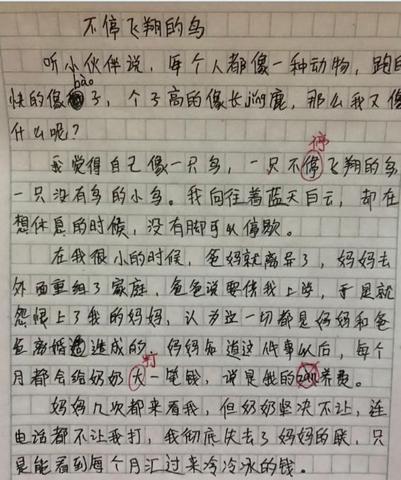 不停飞翔的鸟
听小伙伴说，每个人都像一种动物，跑的
bào
快的像子，个子高的像长jǐng鹿，那么我又像
什么呢？
停
我觉得自己像一只鸟，一只不停飞翔的鸟
一只没有鸟的小鸟。我向往着蓝天白云，却在
想休息的时候，没有脚可以停歇。
在我很小的时候，爸妈就离异了，妈妈去
外面重组了家庭，爸爸说要供我上学，于是就
怨恨上了我的妈妈，认为这一切都是妈妈和爸
打
爸离婚造成的，妈妈知道这件事以后，每个
月都会给奶奶大一笔钱，说是我的养费。
妈妈几次都来看我，但奶奶坚决不让，连
电话都不让我打，我彻底失去了妈妈的联，只
是能看到每个月汇过来冷冷冰的钱。